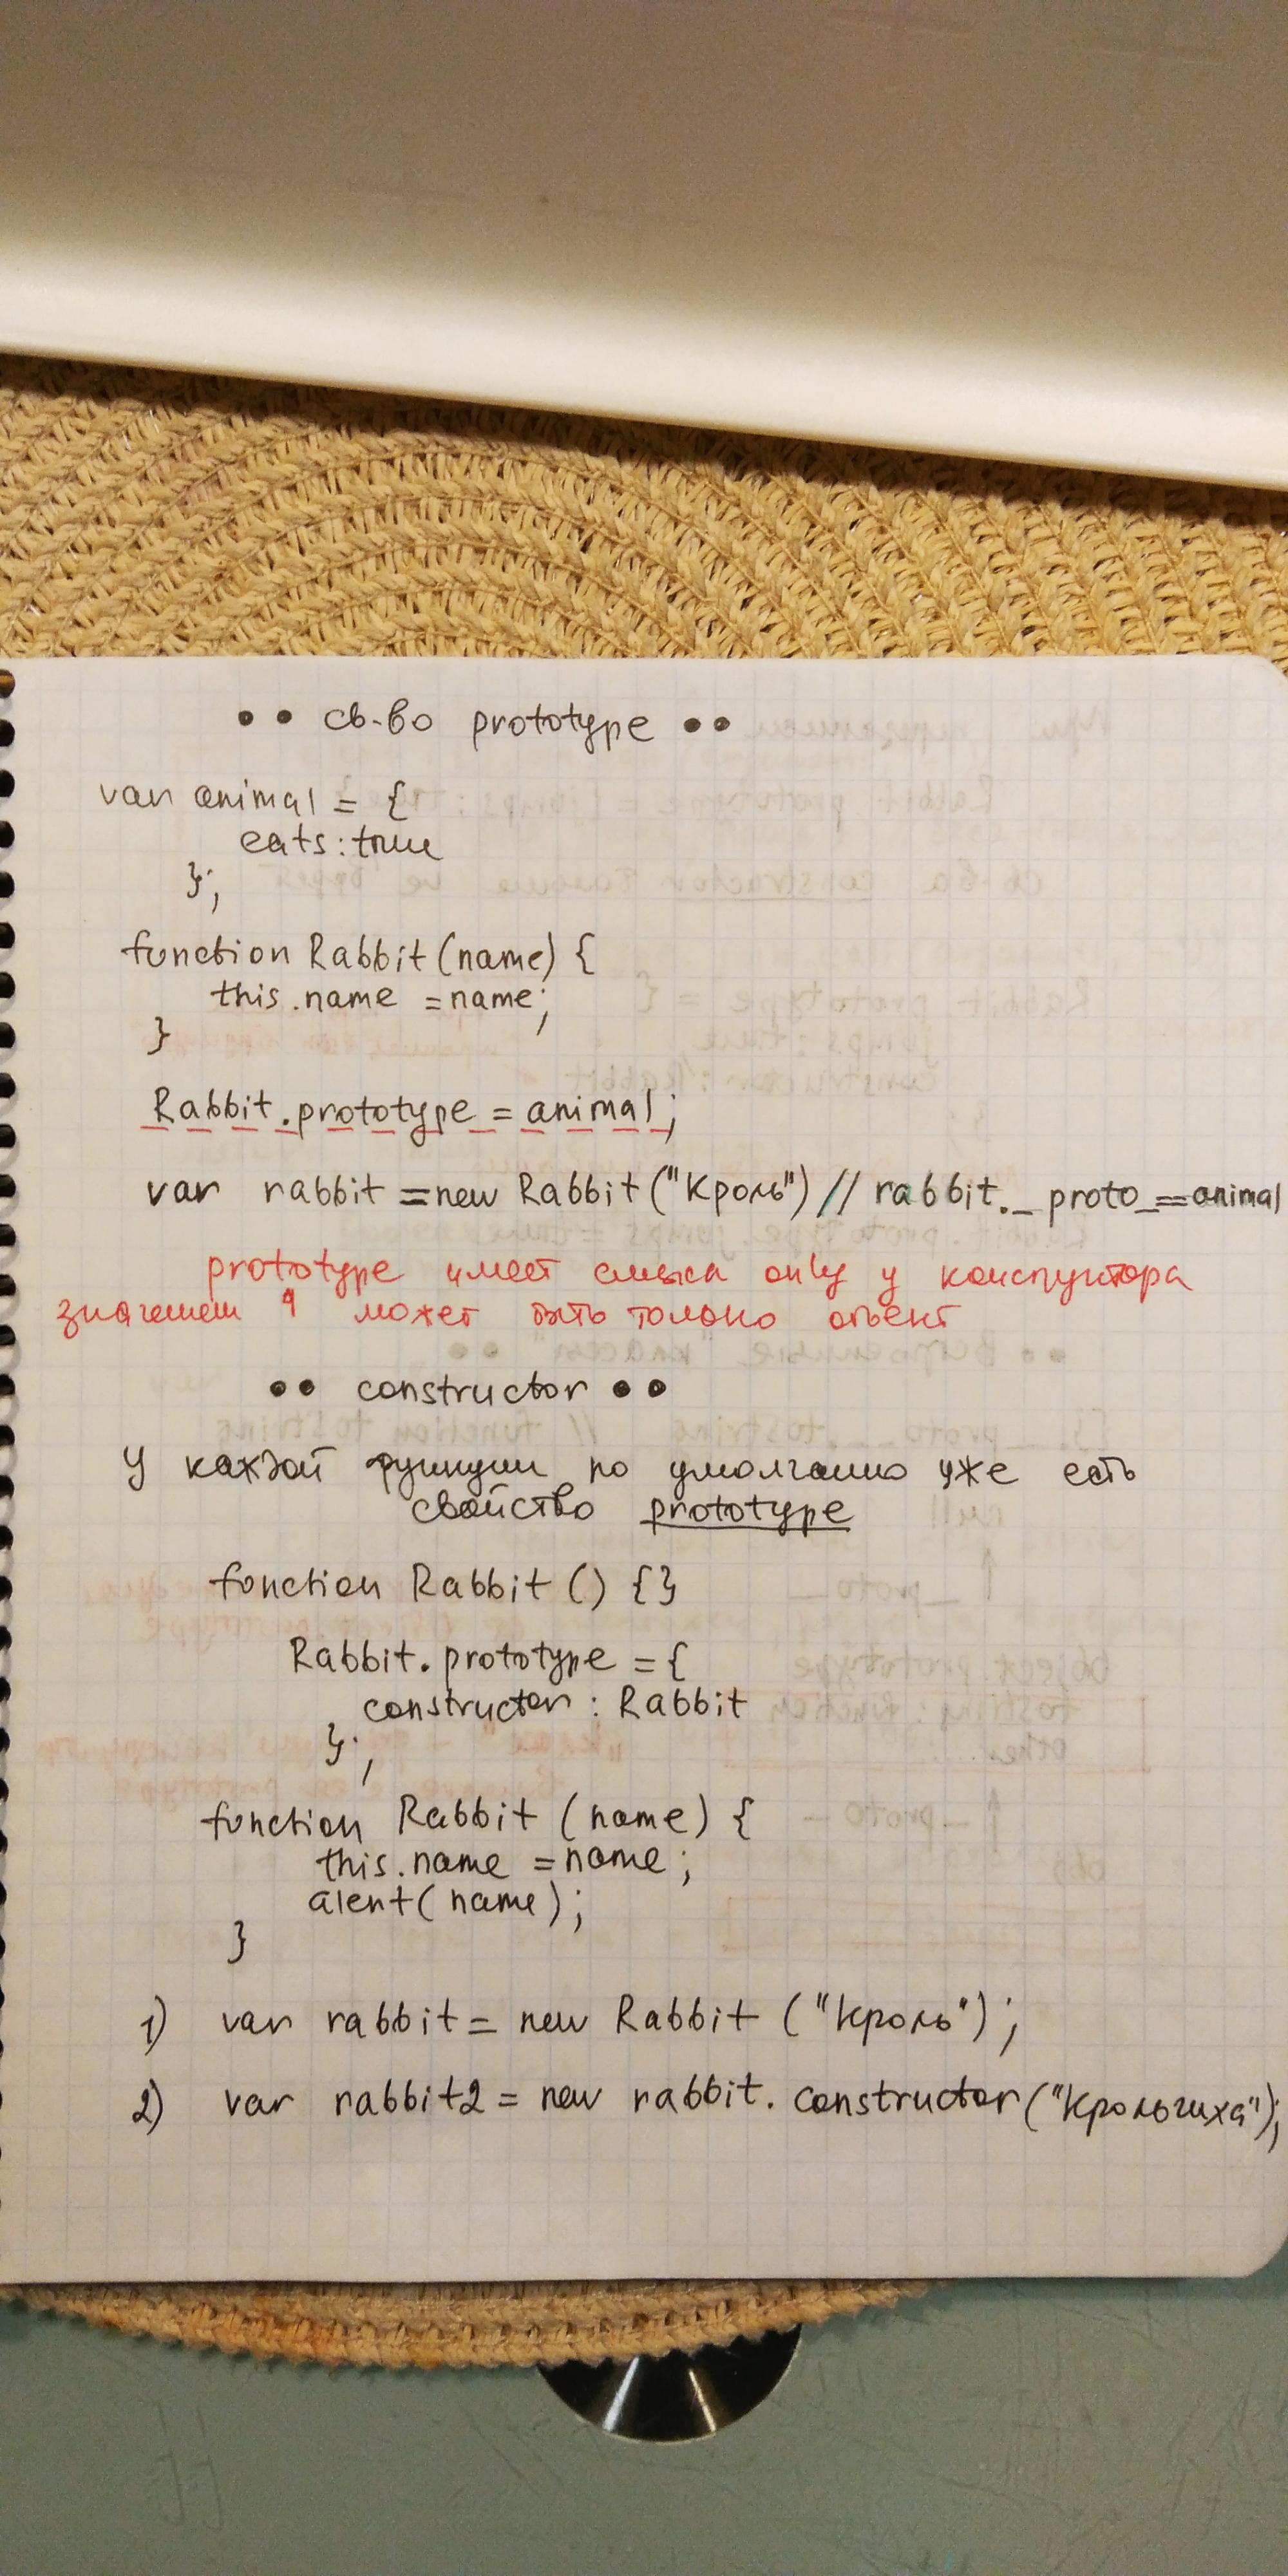 •• св-во prototype ••
var animal = {
eats: true
};
function Rabbit (name) {
this.name = name;
}
Rabbit.prototype = animal;
var rabbit = new Rabbit ("Кроль") // rabbit._proto_== animal
prototype имеет смысл only у конструктора
значением может быть только объект
•• constructor ••
У каждой функции по умолчанию уже есть
свойство prototype
function Rabbit () {}
Rabbit.prototype = {
constructor : Rabbit
};
function Rabbit (name) {
this.name = name;
alert( name );
}
1) var rabbit = new Rabbit ("Кроль");
2) var rabbit2 = new rabbit. constructor ("Крольчиха");